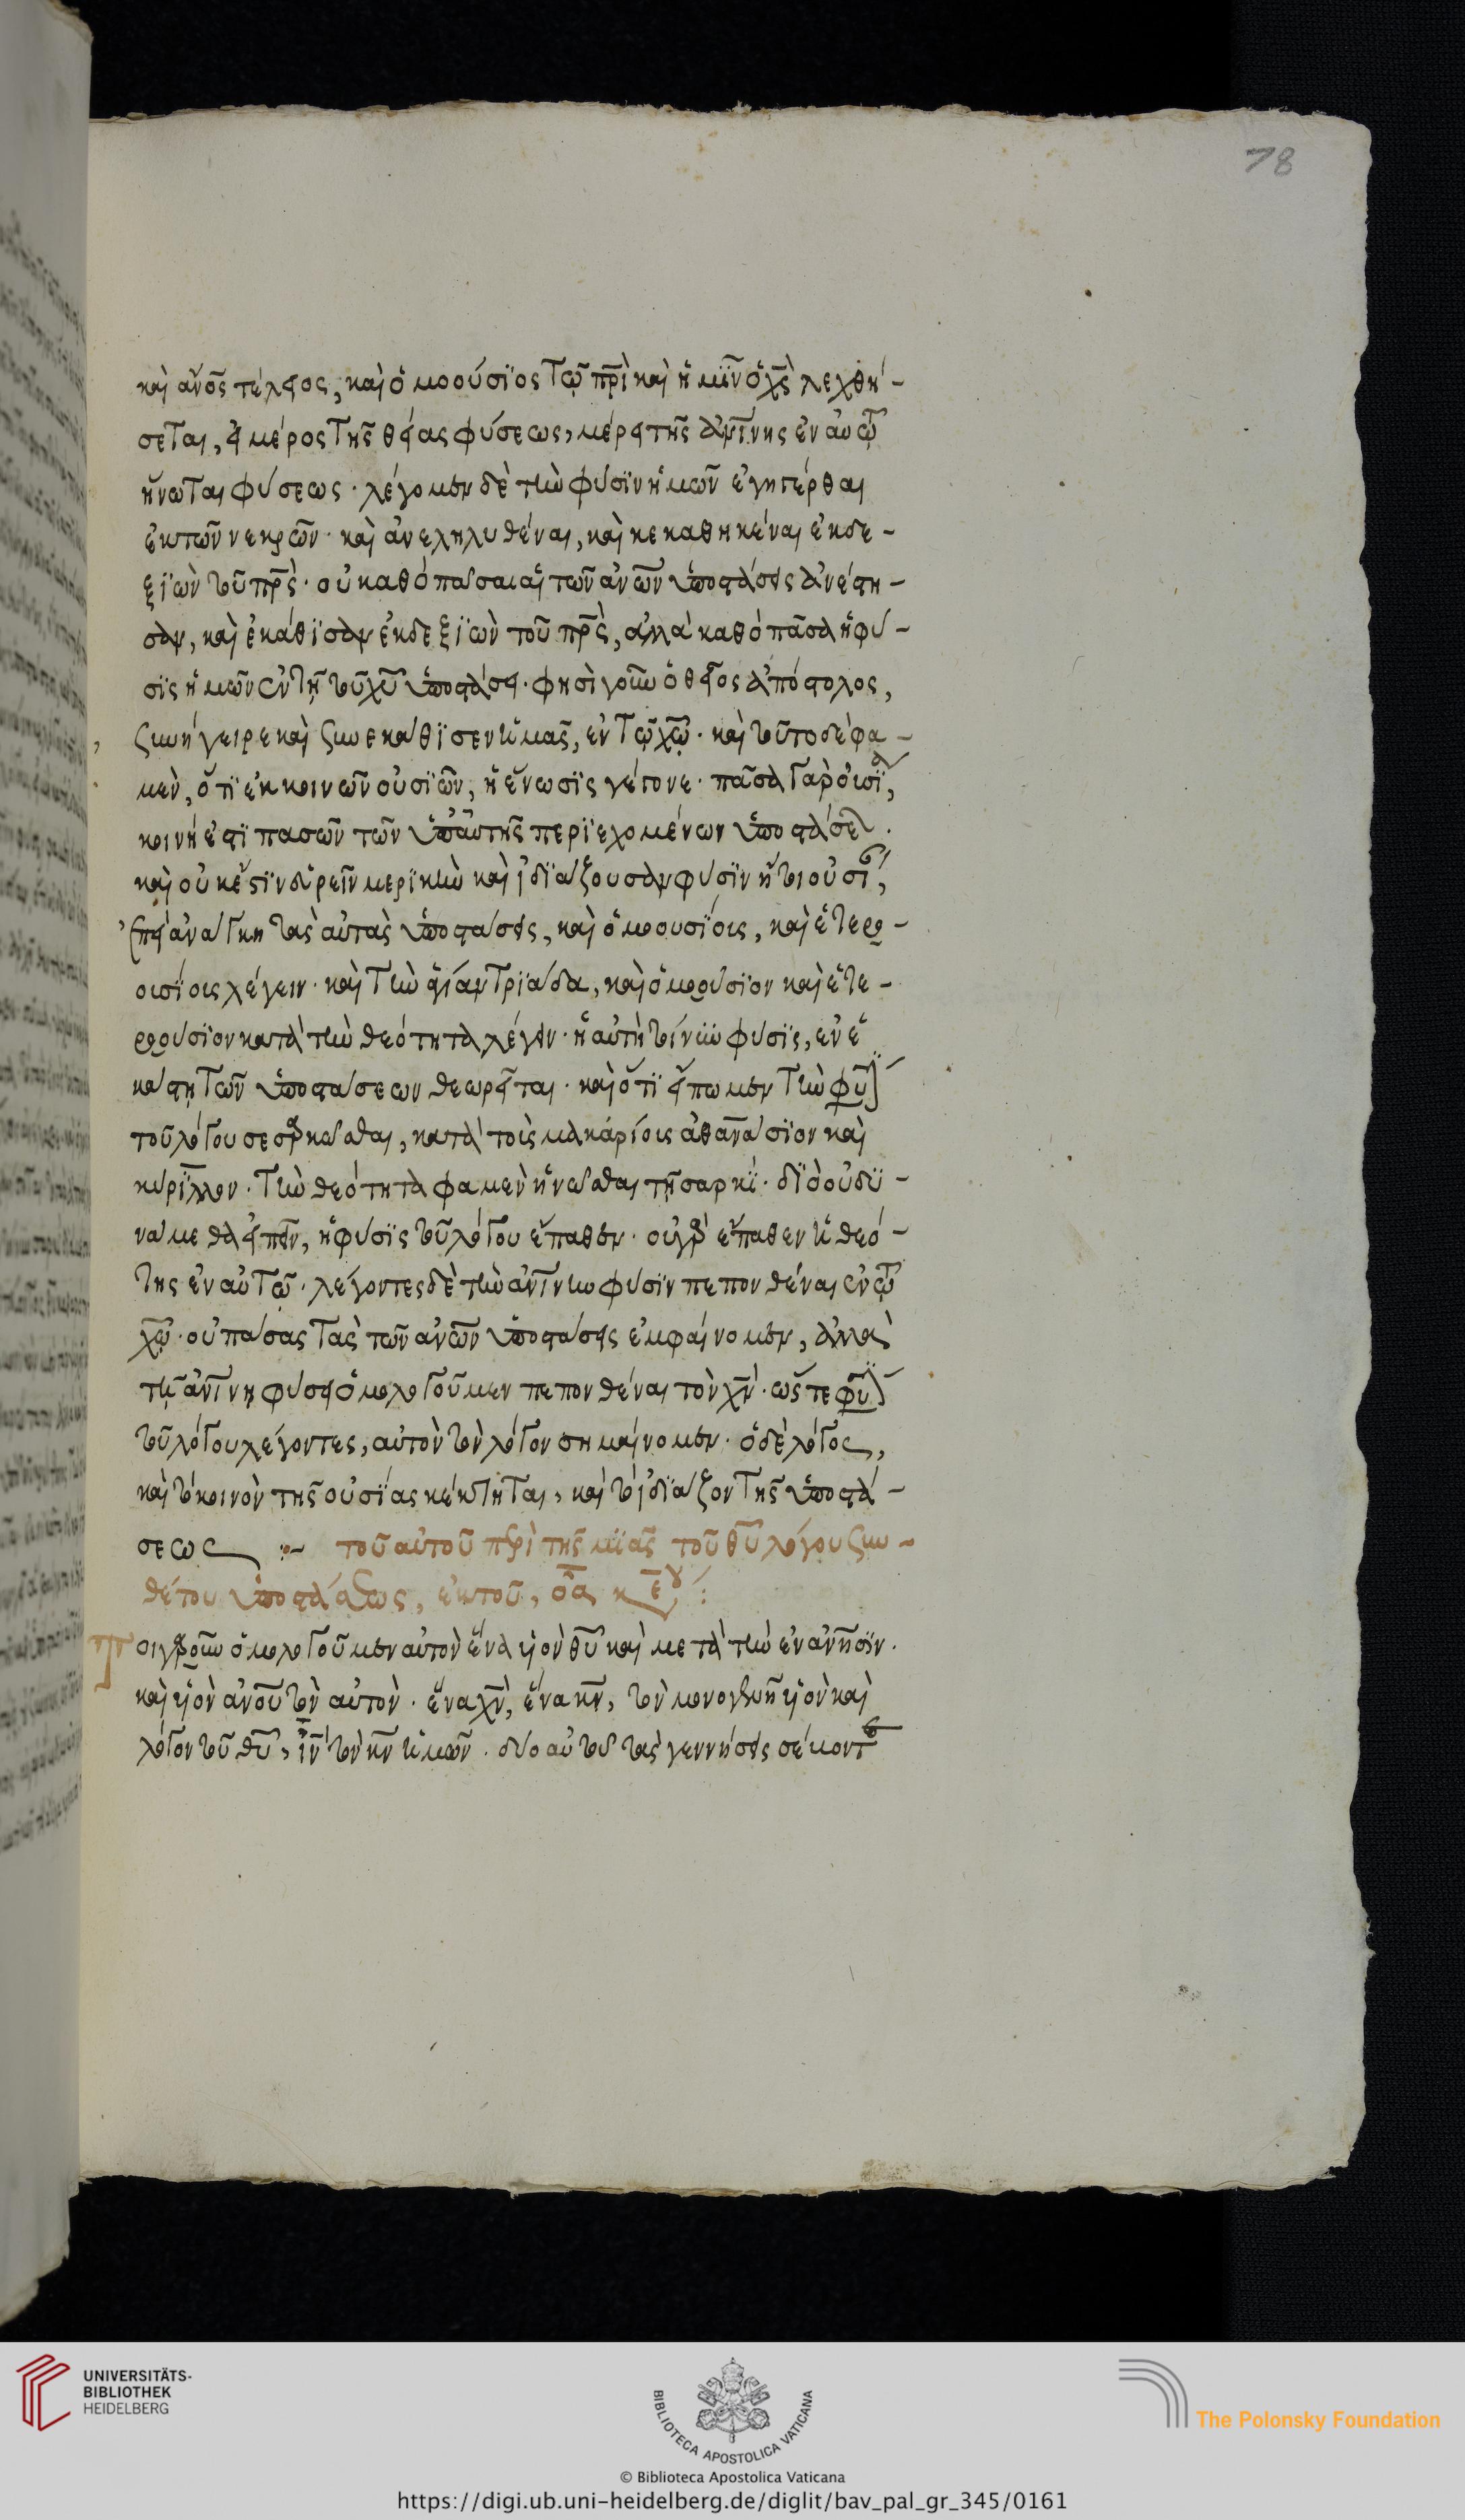 78
καὶ ἄν̅ο̅ς̅ τέλειος, καὶ ὁμοούσιος τῷ π̅ρ̅ι̅ καὶ ἡμῖν ὁ χ̅ς̅ λεχθή-
σεται, εἰ μέρος τῆς θείας φύσεως, μέρει τῆς ἀν̅ι̅νης ἐν αὐτῷ
ἥνωται φύσεως. λέγομεν δὲ τὴν φύσιν ἡμῶν ἐγηγέρθαι
ἐκ τῶν νεκρῶν. καὶ ἀνεληλυθέναι, καὶ κεκαθηκέναι ἐκ δε-
ξιῶν τοῦ π̅ρ̅ς̅. οὐ καθὸ πᾶσαι αἱ τῶν ἀν̅ω̅ν̅ ὑποστάσεις ἀνέστη-
σαν, καὶ ἐκάθισαν ἐκ δεξιῶν τοῦ π̅ρ̅ς̅, ἀλλὰ καθὸ πᾶσα ἡ φύ-
σις ἡμῶν ἐν τῇ τοῦ χ̅υ̅ ὑποστάσει. φησὶ γοῦν ὁ θεῖος ἀπόστολος,
συνήγειρε καὶ συνεκάθισεν ἡμᾶς, ἐν τῷ χ̅ω̅. καὶ τοῦτο δέ φα-
μεν, ὅτι ἐκ κοινῶν οὐσιῶν, ἡ ἕνωσις γέγονε. πᾶσα γὰρ οὐσία,
κοινή ἐστι πασῶν τῶν ὑπ' αὐτῆς περιεχομένων ὑποστάσεων.
καὶ οὐκ ἔστιν εὑρεῖν μερικὴν καὶ ἰδιάζουσαν φύσιν ἤτοι οὐσίαν,
ἐπεὶ ἀνάγκη τὰς αὐτὰς ὑποστάσεις, καὶ ὁμοουσίους, καὶ ἑτερο-
ουσίους λέγειν. καὶ τὴν ἁγίαν τριάδα, καὶ ὁμοούσιον καὶ ἑτε-
ροούσιον κατὰ τὴν θεότητα λέγειν. ἡ αὐτὴ τοίνυν φύσις, ἐν ἑ
κάστῃ τῶν ὑποστάσεων θεωρεῖται. καὶ ὅτι εἴπωμεν τὴν φύσιν
τοῦ λόγου σεσαρκῶσθαι, κατὰ τοὺς μακαρίους ἀθανάσιον καὶ
κύριλλον. τὴν θεότητα φαμὲν ἡνῶσθαι τῇ σαρκί. διὸ οὐ δυ-
νάμεθα εἰπεῖν, ἡ φύσις τοῦ λόγου ἔπαθεν. οὐ γὰρ ἔπαθεν ἡ θεό-
της ἐν αὐτῷ. λέγοντες δὲ τὴν ἀν̅ι̅νην φύσιν πεπονθέναι ἐν τῷ
χ̅ω̅. οὐ πάσας τὰς τῶν ἀν̅ω̅ν̅ ὑποστάσεις ἐμφαίνομεν, ἀλλὰ
τῇ ἀν̅ι̅νῃ φύσει ὁμολογοῦμεν πεπονθέναι τὸν χ̅ν̅. ὥστε φύσιν
τοῦ λόγου λέγοντες, αὐτὸν τὸν λόγον σημαίνομεν. ὁ δὲ λόγος,
καὶ τὸ κοινὸν τῆς οὐσίας κέκτηται, καὶ τὸ ἰδιάζον τῆς ὑποστά-
σεως :- τοῦ αὐτοῦ περὶ τῆς μιᾶς τοῦ θ̅υ̅ λόγου συν-
θέτου ὑποστάσεως, ἐκ τοῦ,
οὐ γὰρ οὖν ὁμολογοῦμεν αὐτὸν ἕνα υἱὸν θ̅υ̅ καὶ μετὰ τὴν ἐνανθρώπησιν.
καὶ υἱὸν ἀν̅ο̅υ̅ τὸν αὐτὸν. ἕνα χ̅ν̅, ἕνα κ̅ν̅, τὸν μονογενῆ υἱὸν καὶ
λόγον τοῦ θ̅υ̅, ι̅ν̅ τὸν κ̅ν̅ ἡμῶν. δύο αὐτοῦ τὰς γεννήσεις σέβοντες
UNIVERSITÄTS-
BIBLIOTHEK
HEIDELBERG
BIBLIOTECA APOSTOLICA VATICANA
The Polonsky Foundation
© Biblioteca Apostolica Vaticana
https://digi.ub.uni-heidelberg.de/diglit/bav_pal_gr_345/0161